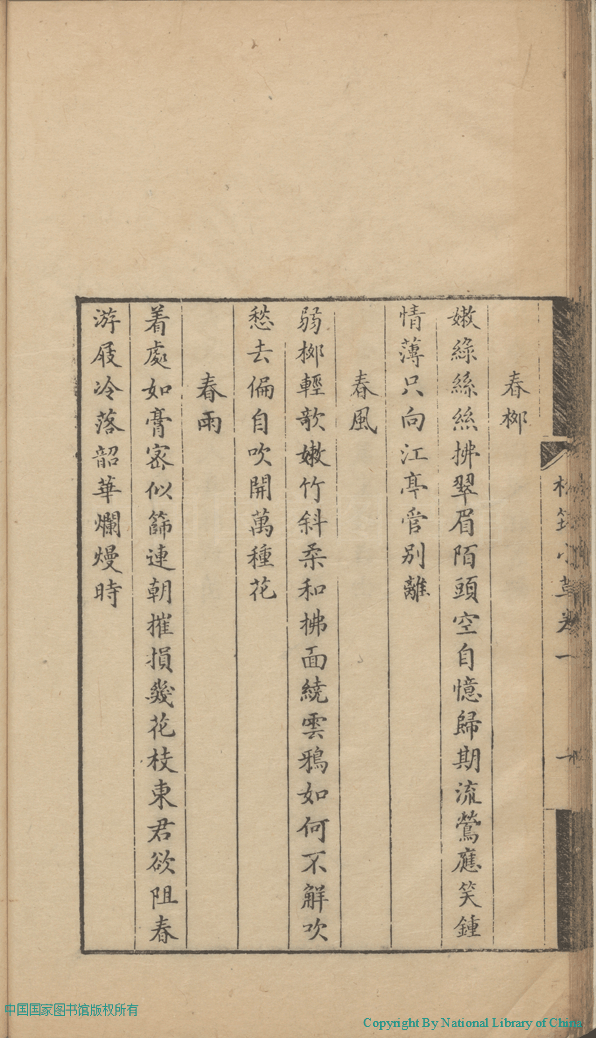 春栁
嫩綠絲絲拂翠眉陌頭空自憶歸期流鶯應笑鍾
情薄只向江亭管別離
春風
弱栁輕歌嫩竹斜柔和拂面繞雲鴉如何不解吹
愁去偏自吹開萬種花
春雨
着處如膏宻似篩連朝摧損幾花枝東君欲阻春
游屐冷落韶華爛熳時
小草卷一
中国国家图书馆版权所有
Copyright By National Library of China